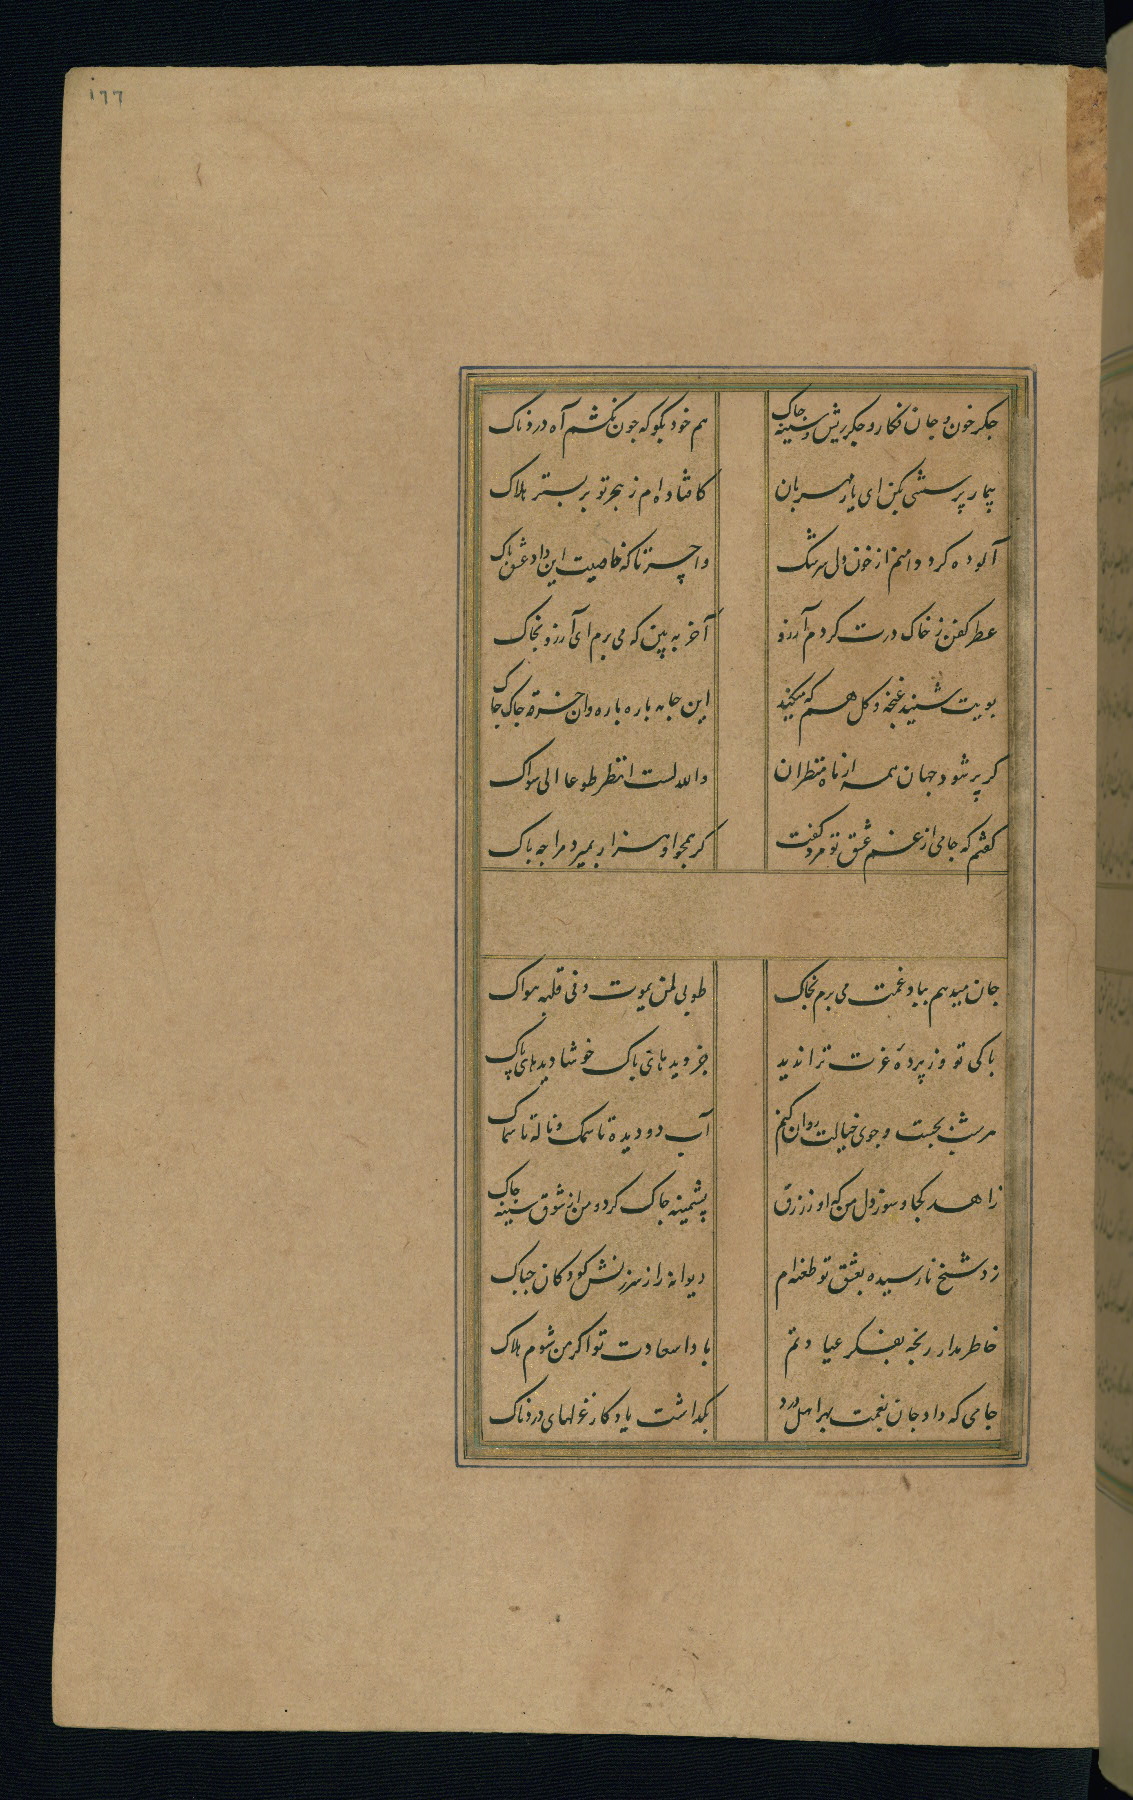 ۱۶۶
جکر خون و جان فکار و جکر ریش و سینه چاک
هم خود بکو که چون نکشم آه دردناک
بیمار پرسشی بکن ای یار مهربان
کافتاده‌ام ز هجر تو بر بستر هلاک
آلوده کرد دامنم از خون دل سرشک
واحسرتا که خاصیت این داد عشق پاک
عطر کفن ز خاک درت کردم آرزو
آخر به بین که می برم ای آرزو بخاک
بویت شنید غنچه و کل هم که میکنند
این جامه باره باره و آن خرقه چاک چاک
کر پر شود جهان همه از ماه منظران
والله لست انظر طوعا الی سواک
کفتم که جامی از غم عشق تو مرد کفت
کر همچو او هزار بمیرد مرا چه باک
جان میدهم بیاد غمت می برم بخاک
طوبی لمن یموت و فی قلبه هواک
پاکی تو وز پردهٔ عزت ترا ندید
جز دیدهای پاک خوشا دیدهای پاک
هر شب بجست و جوی خیالت روان کنم
آب دو دیده تا سمک و ناله تا سماک
زاهد کجا و سوز دل من که او ز زرق
پشمینه چاک کرد و من از شوق سینه چاک
زد شیخ نارسیده بعشق تو طعنه‌ام
دیوانه را ز سرزنش کودکان چه باک
خاطر مدار رنجه بفکر عیادتم
بادا سعادت تو اکر من شوم هلاک
جامی که داد جان بغمت بهر اهل درد
بکذاشت یادکار غزلهای دردناک